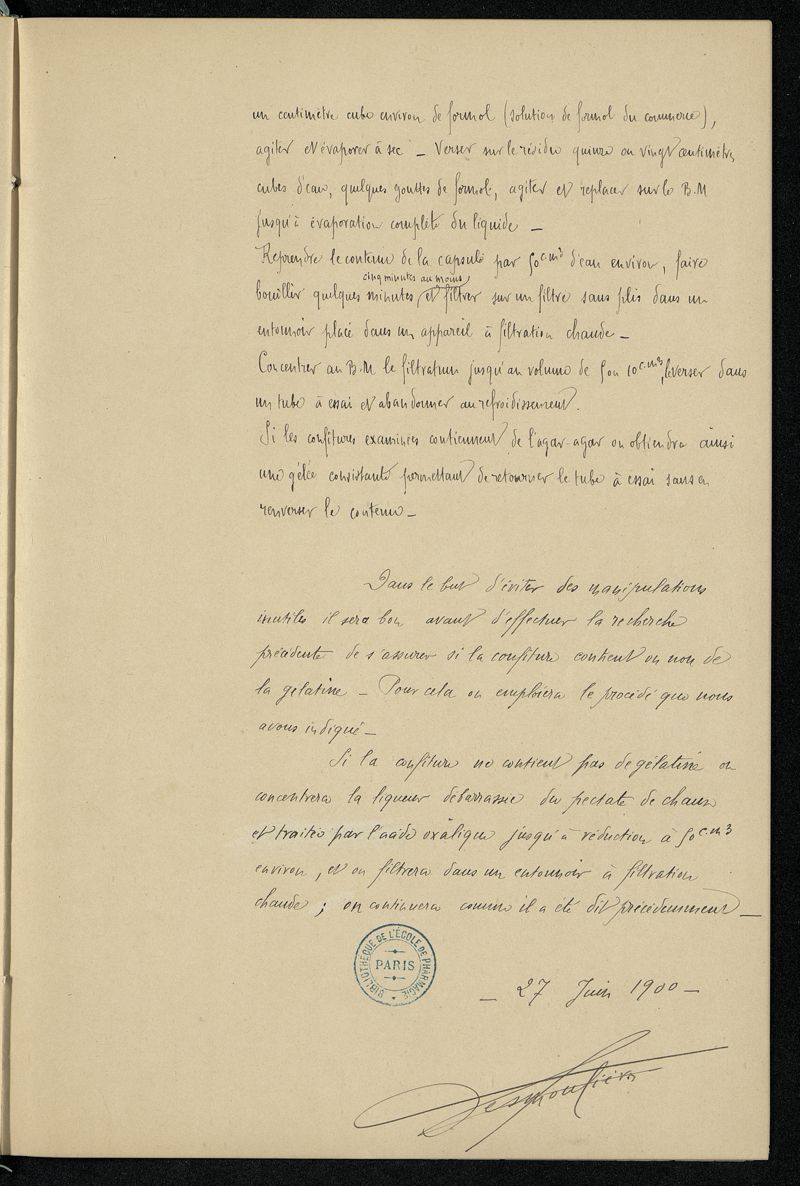 un centimètre cube environ de formol (solution de formol du commerce),
agiter et évaporer à sec _ Verser sur le résidu quinze ou vingt centimètres
cubes d'eau, quelques gouttes de formol, agiter et replacer sur le B.M
jusqu'à évaporation complète du liquide _
Reprendre le contenu de la capsule par 50 c.m3 d'eau environ, faire
cinq minutes au moins
bouillir quelques minutes, et filtrer sur un filtre sans plis dans un
entonnoir placé dans un appareil à filtration chaude _
Concentrer au B.M le filtratum jusqu'au volume de 5 ou 10 c.m3, le verser dans
un tube à essai et abandonner au refroidissement.
Si les confitures examinées contiennent de l'agar-agar on obtiendra ainsi
une gelée consistante permettant de retourner le tube à essai sans en
renverser le contenu _
Dans le but d'éviter des manipulations
inutiles il sera bon avant d'effectuer la recherche
précédente de s'assurer si la confiture contient ou non de
la gélatine _ Pour cela on emploiera le procédé que nous
avons indiqué _
Si la confiture ne contient pas de gélatine on
concentrera la liqueur débarrassée du pectate de chaux
et traitée par l'acide oxalique jusqu'à réduction à 50 c.m3
environ, et on filtrera dans un entonnoir à filtration
chaude ; on continuera comme il a été dit précédemment _
BIBLIOTHÈQUE DE L'ÉCOLE DE PHARMACIE
PARIS
_ 27 Juin 1900 _
Desmoulière